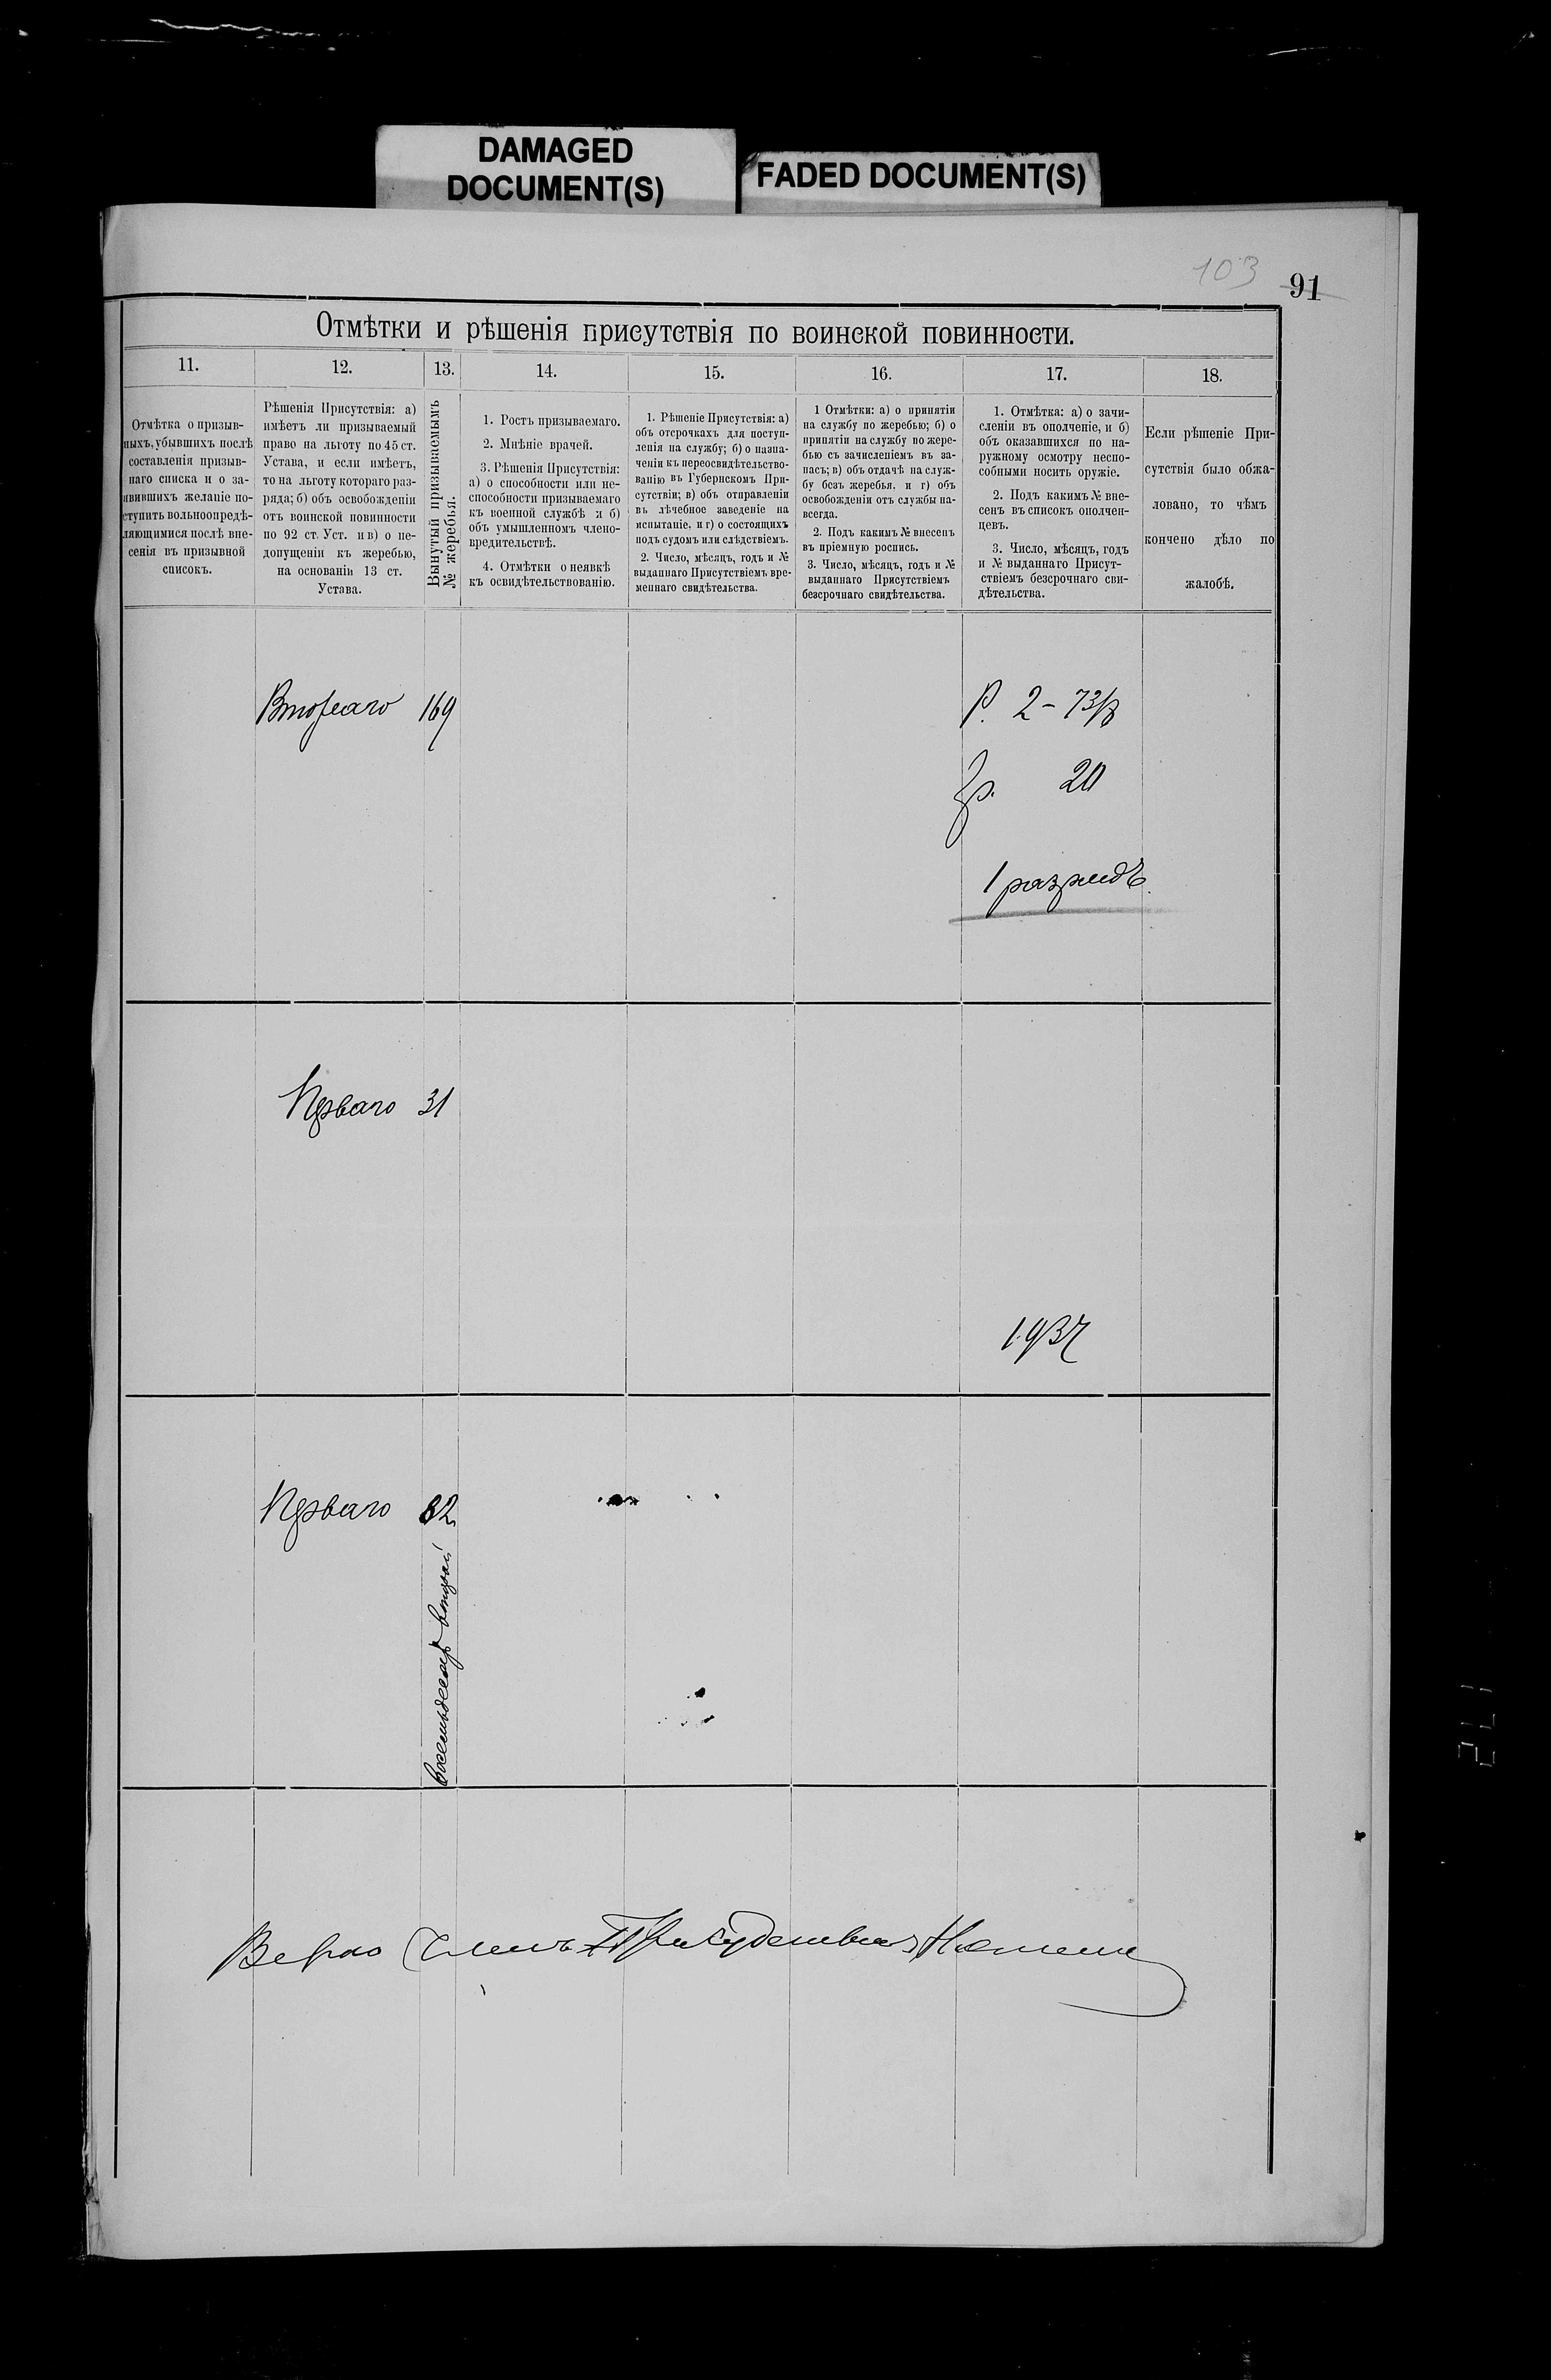 DAMAGED
DOCUMENT(S)
FADED DOCUMENT(S)
103
91
Отмѣтки и рѣшенія присутствія по воинской повинности.
11.
12.
13.
14.
15.
16.
17.
18.
Отмѣтка о призыв-
ныхъ, убывшихъ послѣ
составленія призыв-
наго списка и о за-
явившихъ желаніе по-
ступить вольноопредѣ-
ляющимися послѣ вне-
сенія въ призывной
списокъ.
Рѣшенія Присутствія: а)
имѣетъ ли призываемый
право на льготу по 45 ст.
Устава, и если имѣетъ,
то на льготу котораго раз-
ряда; б) объ освобожденіи
отъ воинской повинности
по 92 ст. Уст. и в) о не-
допущеніи къ жеребью,
на основаніи 13 ст.
Устава.
Вынутый призываемымъ
№ жеребья.
1. Ростъ призываемаго.
2. Мнѣніе врачей.
3. Рѣшенія Присутствія:
а) о способности или не-
способности призываемаго
къ военной службѣ и б)
объ умышленномъ члено-
вредительствѣ.
4. Отмѣтки о неявкѣ
къ освидѣтельствованію.
1. Рѣшеніе Присутствія: а)
объ отсрочкахъ для поступ-
ленія на службу; б) о назна-
ченіи къ переосвидѣтельство-
ванію въ Губернскомъ При-
сутствіи; в) объ отправленіи
въ лѣчебное заведеніе на
испытаніе, и г) о состоящихъ
подъ судомъ или слѣдствіемъ.
2. Число, мѣсяцъ, годъ и №
выданнаго Присутствіемъ вре-
меннаго свидѣтельства.
1 Отмѣтки: а) о принятіи
на службу по жеребью; б) о
принятіи на службу по жере-
бью съ зачисленіемъ въ за-
пасъ; в) объ отдачѣ на служ-
бу безъ жеребья, и г) объ
освобожденіи отъ службы на-
всегда.
2. Подъ какимъ № внесенъ
въ пріемную роспись.
3. Число, мѣсяцъ, годъ и №
выданнаго Присутствіемъ
безсрочнаго свидѣтельства.
1. Отмѣтка: а) о зачи-
сленіи въ ополченіе, и б)
объ оказавшихся по на-
ружному осмотру неспо-
собными носить оружіе.
2. Подъ какимъ № вне-
сенъ въ списокъ ополчен-
цевъ.
3. Число, мѣсяцъ, годъ
и № выданнаго Присут-
ствіемъ безсрочнаго сви-
дѣтельства.
Если рѣшеніе При-
сутствія было обжа-
ловано, то чѣмъ
кончено дѣло по
жалобѣ.
Втораго 169
Р. 2 - 73/8
Гр. 20
1 разрядъ
Перваго 31
1937
Перваго 82
восемьдесятъ второй
Верно Членъ Присудствія